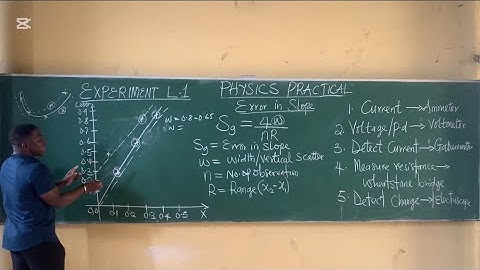 CapCut
EXPERIMENT L.1
PHYSICS PRACTICAL
Error in Slope
Sg = 4(w)
nR
Sg = Error in Slope
W = Width/vertical Scatter
n = No. of observation
R = Range (X₂ - X₁)
W = 0.8 - 0.65
W =
0.9
0.8
0.7
0.6
0.5
0.4
0.3
0.0
0.1
0.2
0.3
0.4
0.5
X
1. Current → Ammeter
2. Voltage/pd → Voltmeter
3. Detect Current → Galvanometer
4. Measure resistance →
Wheatstone bridge
5. Detect Charge → Electroscope